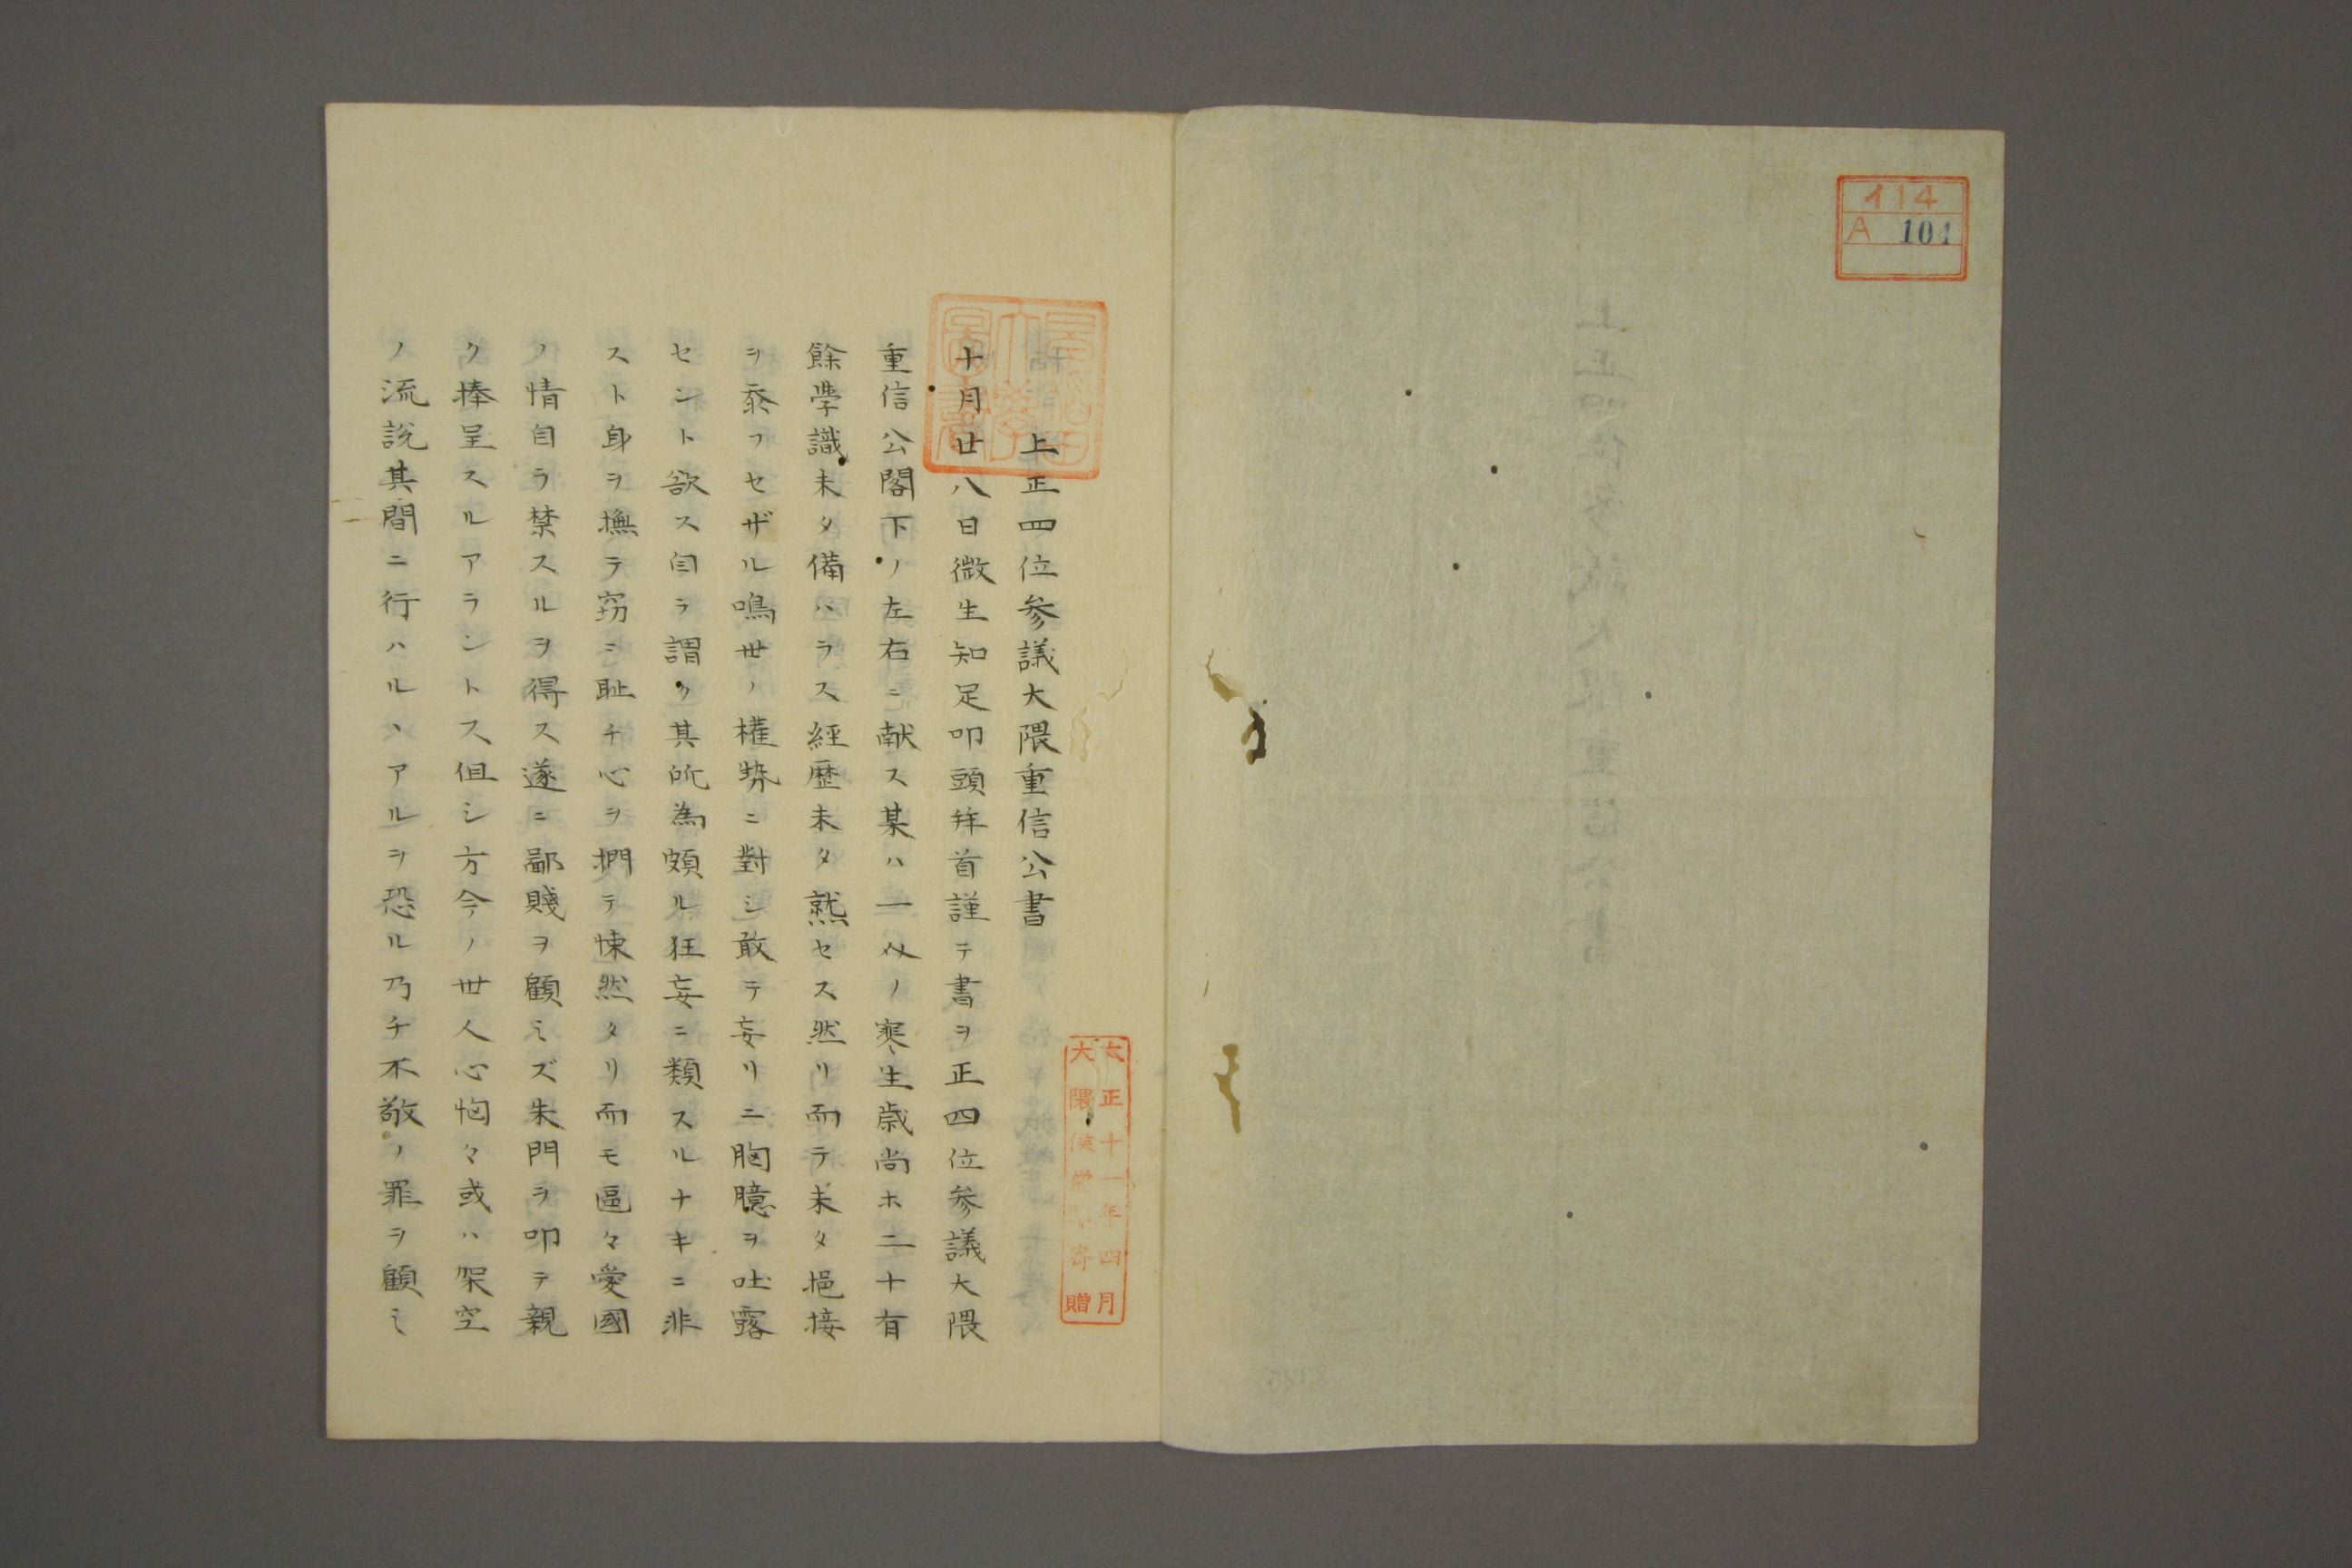 イ14
A 104
上正四位参議大隈重信公書
十月廿八日微生知足叩頭拜首謹テ書ヲ正四位参議大隈
重信公閣下ノ左右ニ献ス某ハ一介ノ寒生歳尚ホ二十有
餘學識未タ備ハラス經歴未タ熟セス然リ而テ未タ挹接
ヲ忝フセザル鳴世ノ權勢ニ對シ敢テ妄リニ胸臆ヲ吐露
セント欲ス自ラ謂ク其所為頗ル狂妄ニ類スルナキニ非
スト身ヲ撫テ窃ニ耻チ心ヲ捫テ悚然タリ而モ區々愛國
ノ情自ラ禁スルヲ得ス遂ニ鄙賤ヲ顧ミズ朱門ヲ叩テ親
ク捧呈スルアラントス但シ方今ノ世人心恟々或ハ架空
ノ流説其間ニ行ハルヽアルヲ恐ル乃チ不敬ノ罪ヲ顧ミ
大正十一年四月
大隈侯爵家寄贈
早稲田大學圖書